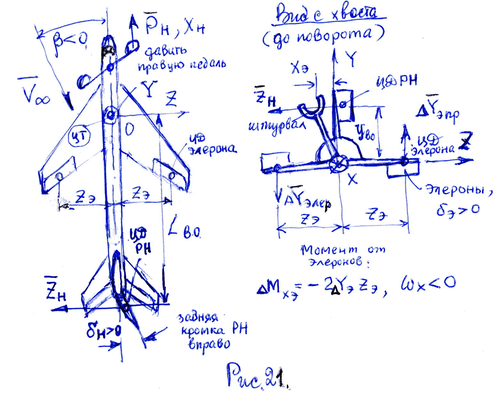 β<0
P̄н, Xн
давить
правую педаль
V̄∞
Z
Y
ЦТ
O
ЦД
элерона
Zэ
Zэ
L во
ЦД
РН
Z̄н
δн>0
задняя
кромка РН
вправо
Вид с хвоста
(до поворота)
Xэ
Y
Z̄н
ЦД РН
штурвал
yво
ΔȲэпр
ЦД
элерона
Z
X
ΔȲэлер
элероны,
δэ>0
Zэ
Zэ
Момент от
элеронов:
ΔMxэ = -2ΔYэ Zэ, ωx<0
Рис. 21.